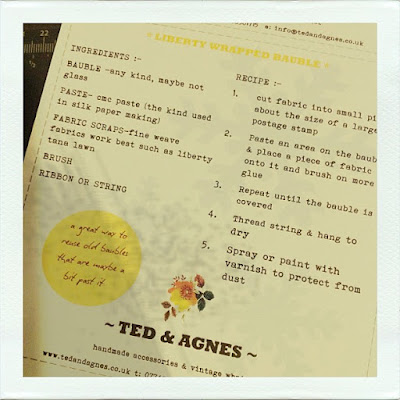 e: info@tedandagnes.co.uk
* LIBERTY WRAPPED BAUBLE *
INGREDIENTS :-
BAUBLE -any kind, maybe not
glass
PASTE- cmc paste (the kind used
in silk paper making)
FABRIC SCRAPS-fine weave
fabrics work best such as liberty
tana lawn
BRUSH
RIBBON OR STRING
RECIPE :-
1. cut fabric into small pi
about the size of a large
postage stamp
2. Paste an area on the baub
& place a piece of fabric
onto it and brush on more
glue
3. Repeat until the bauble is
covered
4. Thread string & hang to
dry
5. Spray or paint with
varnish to protect from
dust
a great way to
reuse old baubles
that are maybe a
bit past it.
~ TED & AGNES ~
handmade accessories & vintage
www.tedandagnes.co.uk t:
22